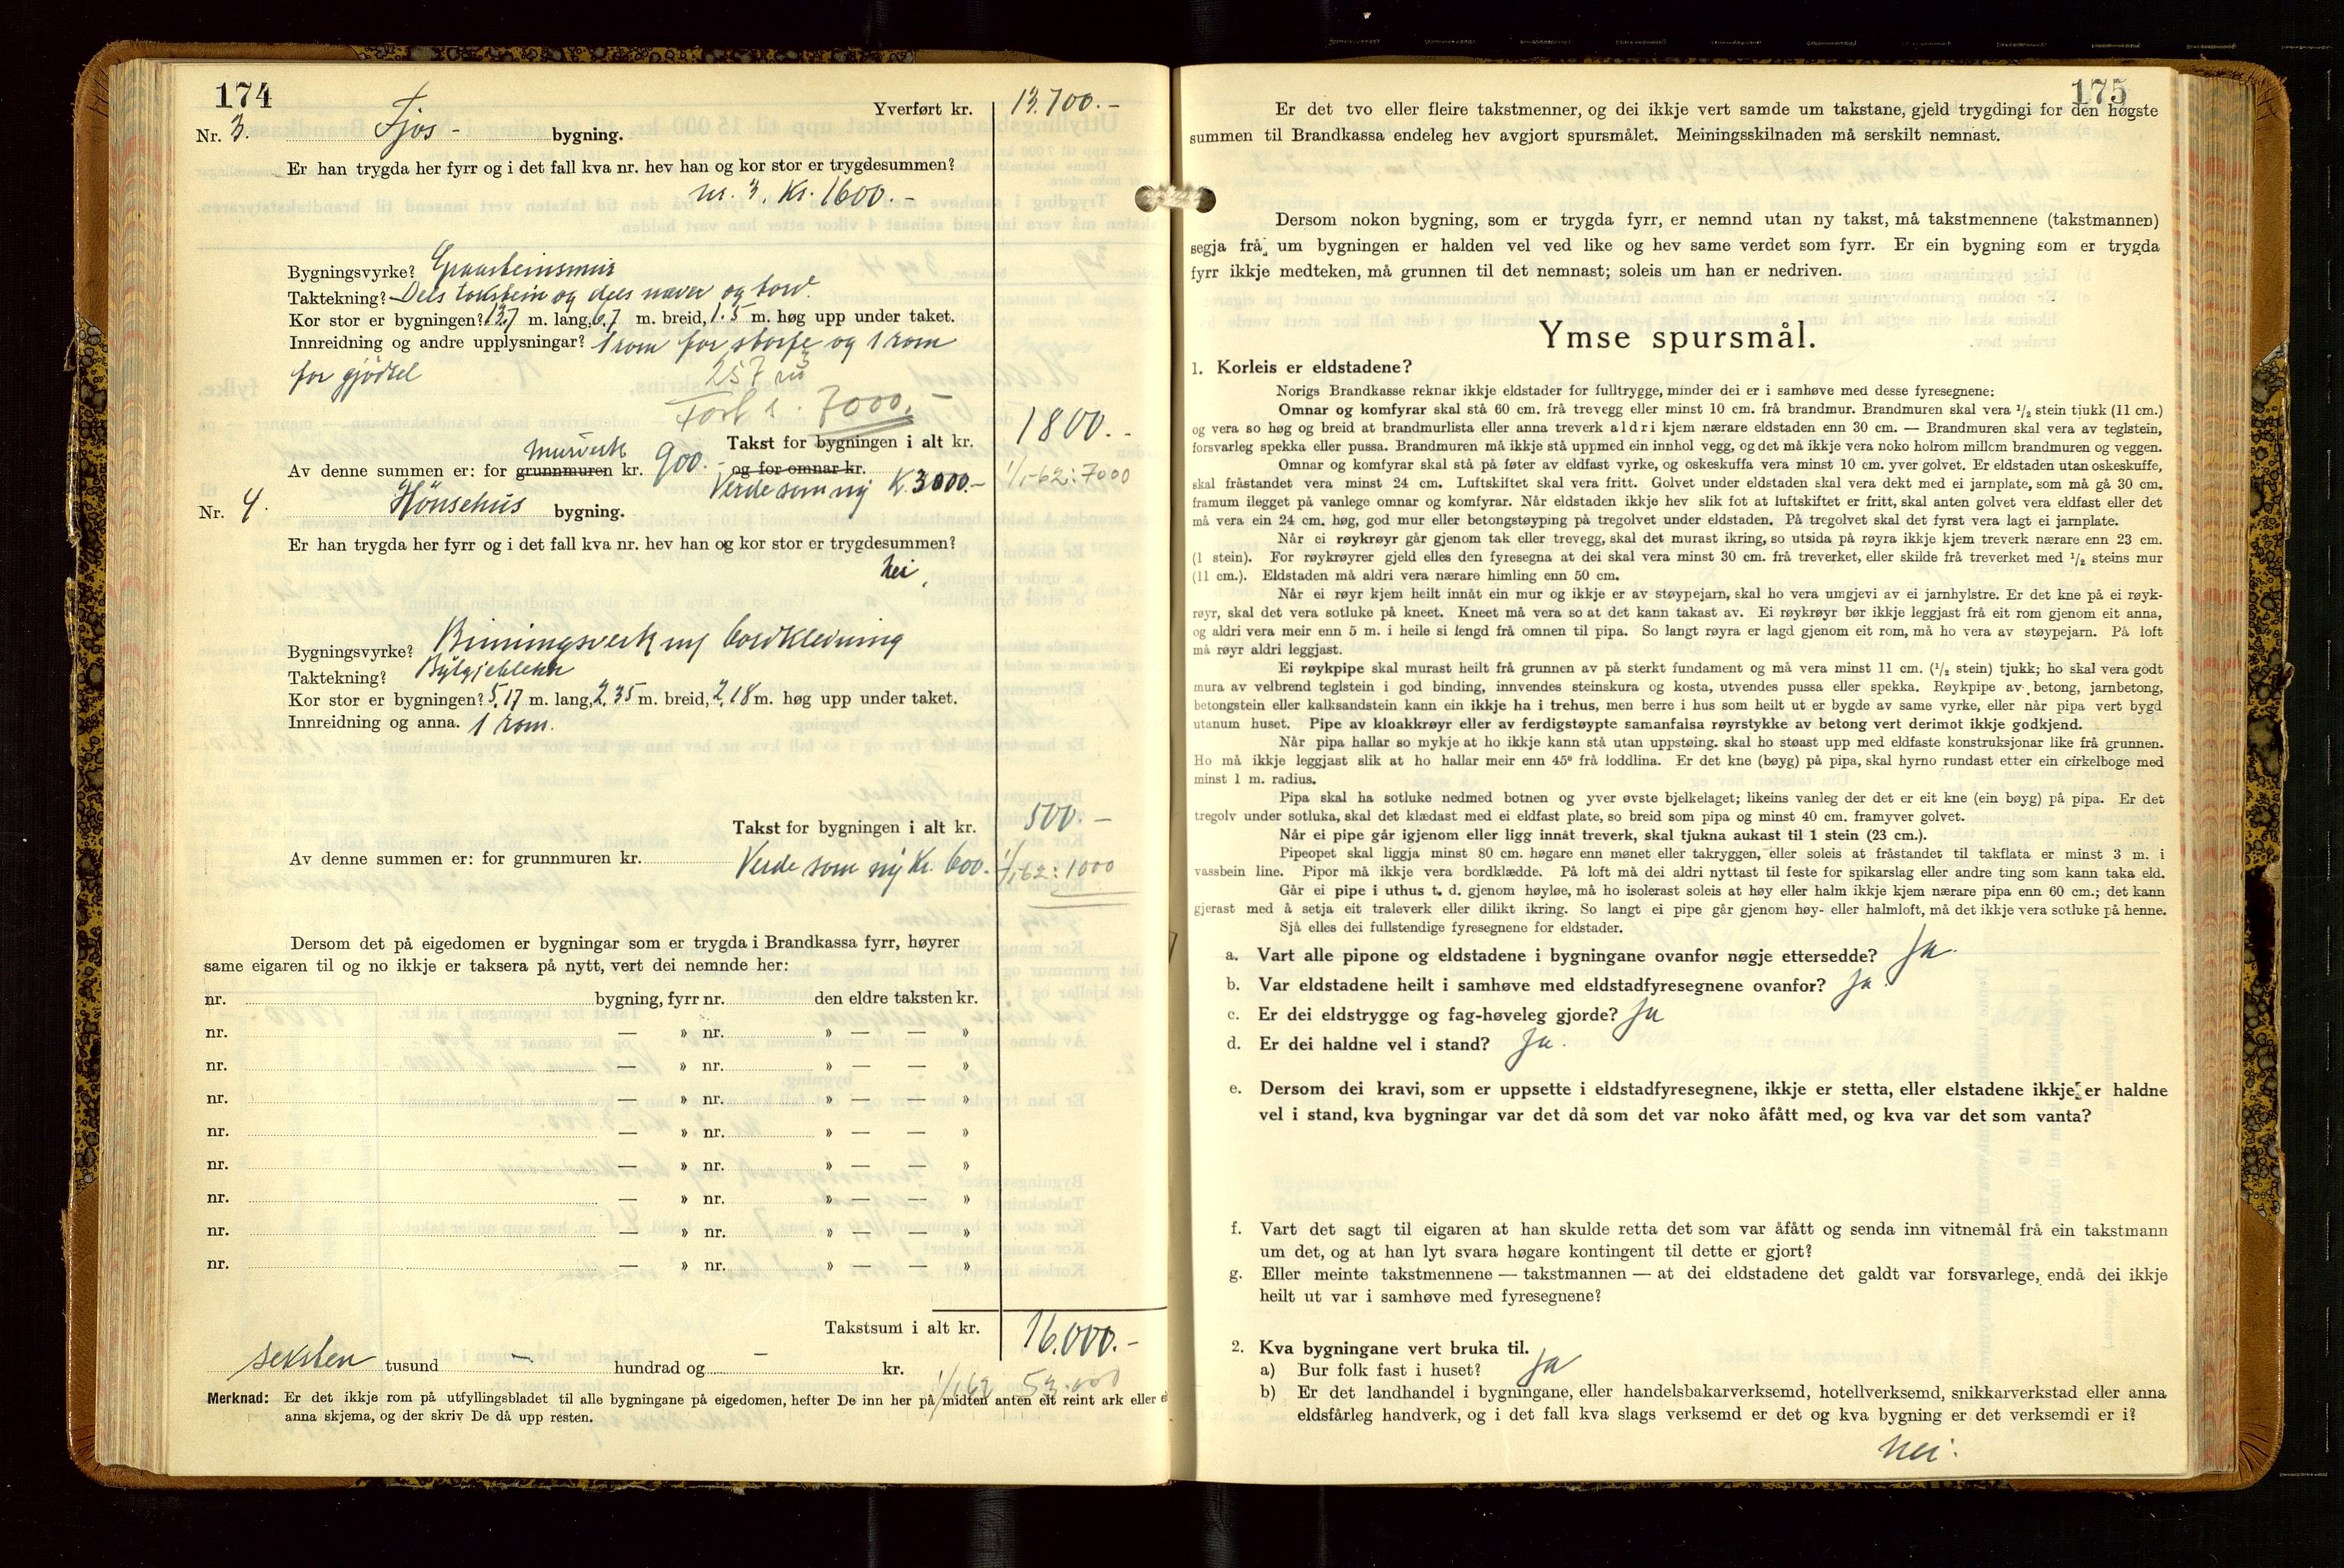 174
Yverført kr. 13.700.-
Nr. 3. Fjos- bygning.
Er han trygda her fyrr og i det fall kva nr. hev han og kor stor er trygdesummen?
nr. 3. Kr. 1600.-
Bygningsvyrke? Graasteinsmur
Taktekning? Dels takstein og dels næver og bord.
Kor stor er bygningen? 13.7 m. lang, 6.7 m. breid, 1.5 m. høg upp under taket.
Innreidning og andre upplysningar? 1 rom for storfe og 1 rom
for gjødsel
257 m³
7000.-
Takst for bygningen i alt kr. 1800.-
murverk
Av denne summen er: for grunnmuren kr. 900.- og for omnar kr.
Verde som ny K. 3000.- 1/1-62: 7000
Nr. 4. Hönsehus bygning.
Er han trygda her fyrr og i det fall kva nr. hev han og kor stor er trygdesummen?
nei
Bygningsvyrke? Binningsverk m/ bordkledning
Taktekning? Bylgjeblekk
Kor stor er bygningen? 5,17 m. lang, 2,35 m. breid, 2,18 m. høg upp under taket.
Innreidning og anna. 1 rom.
Takst for bygningen i alt kr. 500.-
Av denne summen er: for grunnmuren kr.
Verde som ny Kr. 600.- 1/1-62: 1000
Dersom det på eigedomen er bygningar som er trygda i Brandkassa fyrr, høyrer
same eigaren til og no ikkje er taksera på nytt, vert dei nemnde her:
nr. bygning, fyrr nr. den eldre taksten kr.
nr. — » nr. » — — »
nr. — » nr. » — — »
nr. — » nr. » — — »
nr. — » nr. » — — »
nr. — » nr. » — — »
nr. — » nr. » — — »
nr. — » nr. » — — »
nr. — » nr. » — — »
Takstsum i alt kr. 16.000.-
seksten tusund — hundrad og — kr.
1/1 62 53.000
Merknad: Er det ikkje rom på utfyllingsbladet til alle bygningane på eigedomen, hefter De inn her på midten anten eit reint ark eller
anna skjema, og der skriv De då upp resten.
175
Er det tvo eller fleire takstmenner, og dei ikkje vert samde um takstane, gjeld trygdingi for den høgste
summen til Brandkassa endeleg hev avgjort spursmålet. Meiningsskilnaden må serskilt nemnast.
Dersom nokon bygning, som er trygda fyrr, er nemnd utan ny takst, må takstmennene (takstmannen)
segja frå um bygningen er halden vel ved like og hev same verdet som fyrr. Er ein bygning som er trygda
fyrr ikkje medteken, må grunnen til det nemnast; soleis um han er nedriven.
Ymse spursmål.
1. Korleis er eldstadene?
Norigs Brandkasse reknar ikkje eldstader for fulltrygge, minder dei er i samhøve med desse fyresegnene:
Omnar og komfyrar skal stå 60 cm. frå trevegg eller minst 10 cm. frå brandmur. Brandmuren skal vera 1/2 stein tjukk (11 cm.)
og vera so høg og breid at brandmurlista eller anna treverk aldri kjem nærare eldstaden enn 30 cm. — Brandmuren skal vera av teglstein,
forsvarleg spekka eller pussa. Brandmuren må ikkje stå uppmed ein innhol vegg, og det må ikkje vera noko holrom millom brandmuren og veggen.
Omnar og komfyrar skal stå på føter av eldfast vyrke, og oskeskuffa vera minst 10 cm. yver golvet. Er eldstaden utan oskeskuffe,
skal fråstandet vera minst 24 cm. Luftskiftet skal vera fritt. Golvet under eldstaden skal vera dekt med ei jarnplate, som må gå 30 cm.
framum ilegget på vanlege omnar og komfyrar. Når eldstaden ikkje hev slik fot at luftskiftet er fritt, skal anten golvet vera eldfast eller det
må vera ein 24 cm. høg, god mur eller betongstøyping på tregolvet under eldstaden. På tregolvet skal det fyrst vera lagt ei jarnplate.
Når ei røykrøyr går gjenom tak eller trevegg, skal det murast ikring, so utsida på røyra ikkje kjem treverk nærare enn 23 cm.
(1 stein). For røykrøyrer gjeld elles den fyresegna at dei skal vera minst 30 cm. frå treverket, eller skilde frå treverket med 1/2 steins mur
(11 cm.). Eldstaden må aldri vera nærare himling enn 50 cm.
Når ei røyr kjem heilt innåt ein mur og ikkje er av støypejarn, skal ho vera umgjevi av ei jarnhylstre. Er det kne på ei røyk-
røyr, skal det vera sotluke på kneet. Kneet må vera so at det kann takast av. Ei røykrøyr bør ikkje leggjast frå eit rom gjenom eit anna,
og aldri vera meir enn 5 m. i heile si lengd frå omnen til pipa. So langt røyra er lagd gjenom eit rom, må ho vera av støypejarn. På loft
må røyr aldri leggjast.
Ei røykpipe skal murast heilt frå grunnen av på sterkt fundament og må vera minst 11 cm. (1/2 stein) tjukk; ho skal vera godt
mura av velbrend teglstein i god binding, innvendes steinskura og kosta, utvendes pussa eller spekka. Røykpipe av betong, jarnbetong,
betongstein eller kalksandstein kann ein ikkje ha i trehus, men berre i hus som heilt ut er bygde av same vyrke, eller når pipa vert bygd
utanum huset. Pipe av kloakkrøyr eller av ferdigstøypte samanfalsa røyrstykke av betong vert derimot ikkje godkjend.
Når pipa hallar so mykje at ho ikkje kann stå utan uppstøing. skal ho støast upp med eldfaste konstruksjonar like frå grunnen.
Ho må ikkje leggjast slik at ho hallar meir enn 45° frå loddlina. Er det kne (bøyg) på pipa, skal hyrno rundast etter ein cirkelboge med
minst 1 m. radius.
Pipa skal ha sotluke nedmed botnen og yver øvste bjelkelaget; likeins vanleg der det er eit kne (ein bøyg) på pipa. Er det
tregolv under sotluka, skal det klædast med ei eldfast plate, so breid som pipa og minst 40 cm. framyver golvet.
Når ei pipe går igjenom eller ligg innåt treverk, skal tjukna aukast til 1 stein (23 cm.).
Pipeopet skal liggja minst 80 cm. høgare enn mønet eller takryggen, eller soleis at fråstandet til takflata er minst 3 m. i
vassbein line. Pipor må ikkje vera bordklædde. På loft må dei aldri nyttast til feste for spikarslag eller andre ting som kann taka eld.
Går ei pipe i uthus t. d. gjenom høyløe, må ho isolerast soleis at høy eller halm ikkje kjem nærare pipa enn 60 cm.; det kann
gjerast med å setja eit traleverk eller dilikt ikring. So langt ei pipe går gjenom høy- eller halmloft, må det ikkje vera sotluke på henne.
Sjå elles dei fullstendige fyresegnene for eldstader.
a. Vart alle pipone og eldstadene i bygningane ovanfor nøgje ettersedde? Ja.
b. Var eldstadene heilt i samhøve med eldstadfyresegnene ovanfor? Ja
c. Er dei eldstrygge og fag-høveleg gjorde? Ja
d. Er dei haldne vel i stand? Ja.
e. Dersom dei kravi, som er uppsette i eldstadfyresegnene, ikkje er stetta, eller elstadene ikkje er haldne
vel i stand, kva bygningar var det då som det var noko åfått med, og kva var det som vanta?
f. Vart det sagt til eigaren at han skulde retta det som var åfått og senda inn vitnemål frå ein takstmann
um det, og at han lyt svara høgare kontingent til dette er gjort?
g. Eller meinte takstmennene — takstmannen — at dei eldstadene det galdt var forsvarlege, endå dei ikkje
heilt ut var i samhøve med fyresegnene?
2. Kva bygningane vert bruka til.
a) Bur folk fast i huset? Ja
b) Er det landhandel i bygningane, eller handelsbakarverksemd, hotellverksemd, snikkarverkstad eller anna
eldsfårleg handverk, og i det fall kva slags verksemd er det og kva bygning er det verksemdi er i?
Nei.